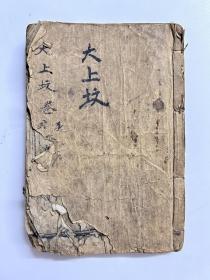 大上坟
大上坟卷